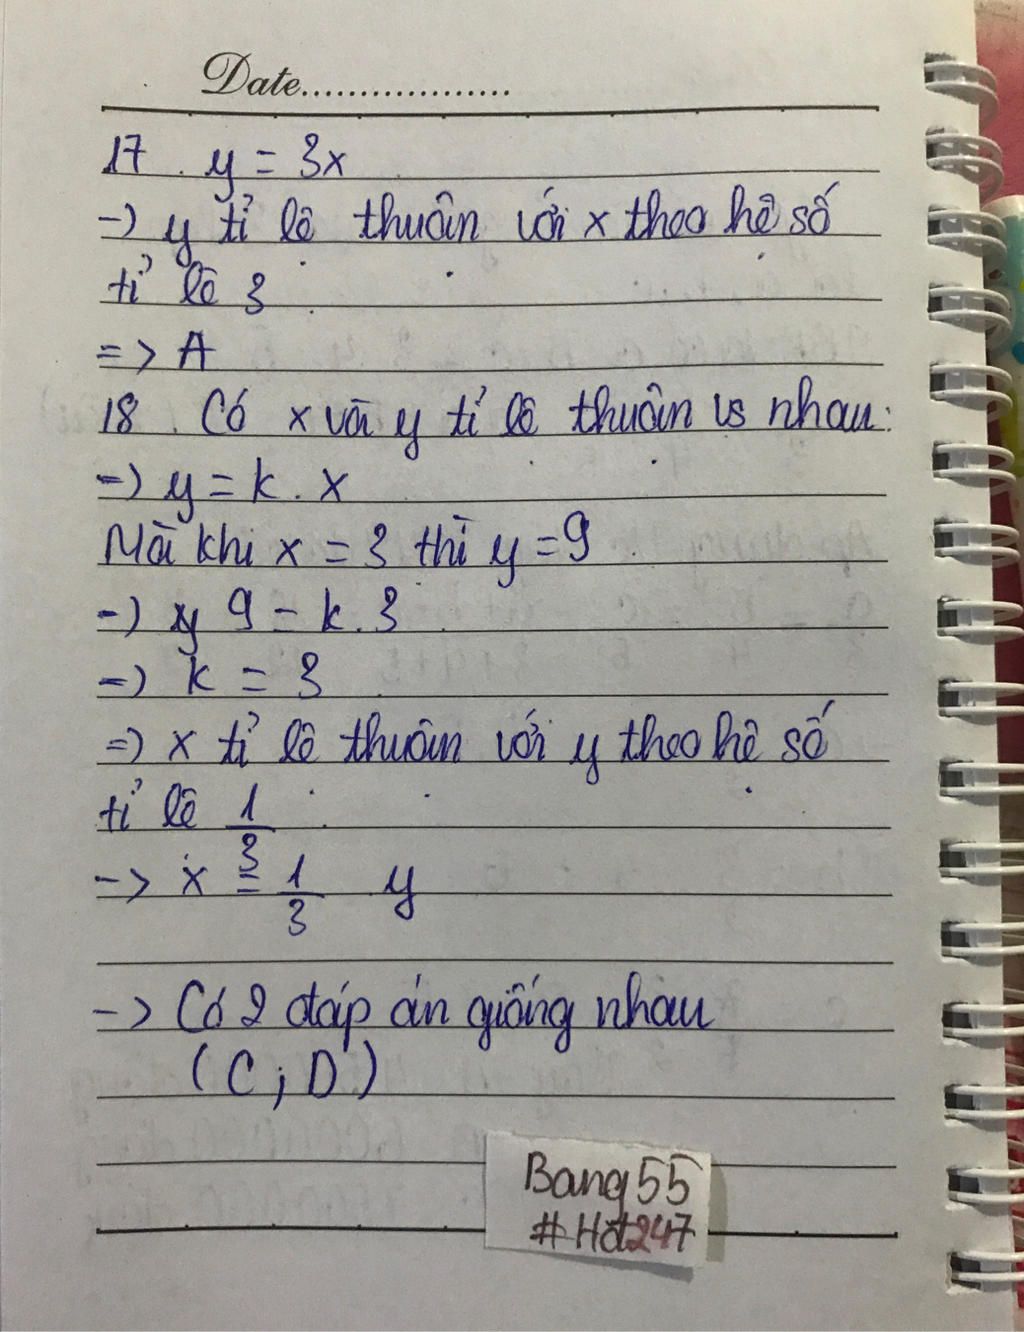 Date..................
17. y = 3x
-) y tỉ lệ thuận với x theo hệ số
tỉ lệ 3
=> A
18. Có x và y tỉ lệ thuận vs nhau:
-) y = k. x
Mà khi x = 3 thì y = 9
-) 9 = k. 3
-) k = 3
=) x tỉ lệ thuận với y theo hệ số
tỉ lệ 1/3
-> x = 1/3 y
-> Có 2 đáp án giống nhau
(C; D)
Bang55
#Hot247